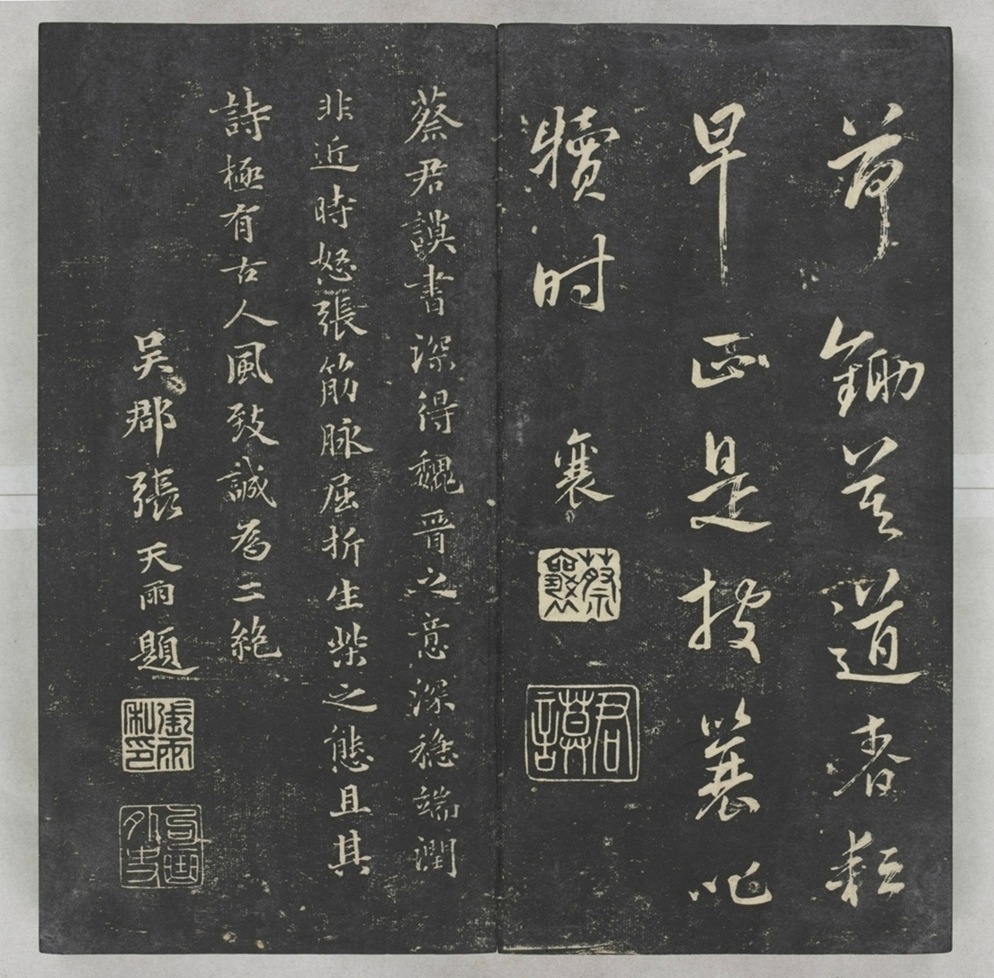 荷鋤莫道春耘
早正是披蓑叱
犢时 襄
蔡襄
君謨
蔡君謨書深得魏晋之意深穩端潤
非近時怒張筋脉屈折生柴之態且其
詩極有古人風致誠為二絶
吴郡張天雨題
張雨私印
句曲外史